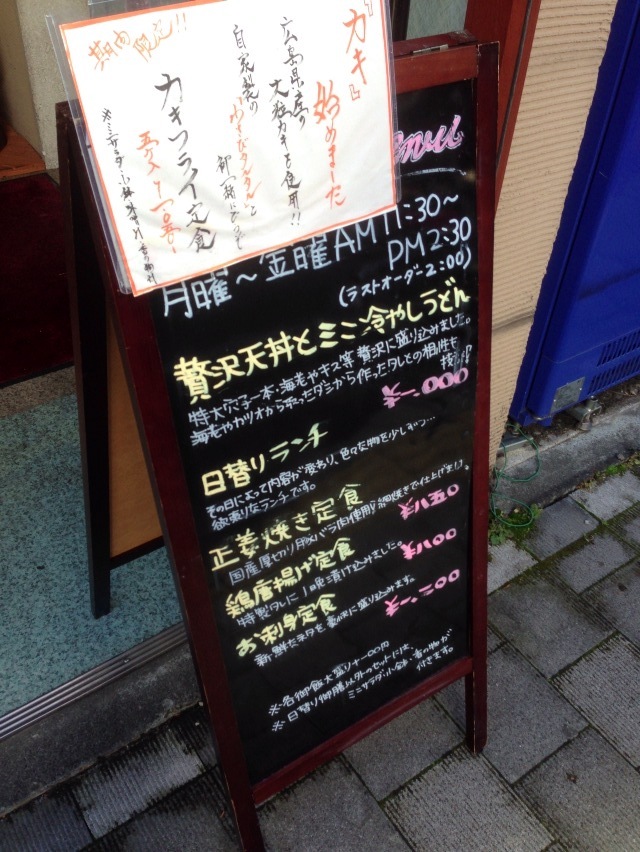 『カキ』
始めました
広島県産の
大粒カキを使用!!
自家製の
わさびタルタルと
期間
限定!!
カキフライ定食
※ミニサラダ・小鉢
月曜〜金曜AM11:30〜
PM2:30
(ラストオーダー2:00)
贅沢天丼とミニ冷やしうどん
特大穴子一本・海老やキス等贅沢に盛り込みました。
海老やカツオから取ったダシから作ったタレとの相性も
抜群!!
日替りランチ
その日によって内容が変わり、色々な物を少しずつ…
欲張りなランチです。
生姜焼き定食
国産厚切り豚バラ肉使用し網焼きで仕上げます。
¥八五〇
鶏唐揚げ定食
特製タレに1晩漬け込みました。
¥八〇〇
お刺身定食
新鮮なネタを豪快に盛り込みます。
※各御飯大盛り¥一〇〇円
※日替り御膳以外のセットには、
ミニサラダ・小鉢・香の物が
付きます。